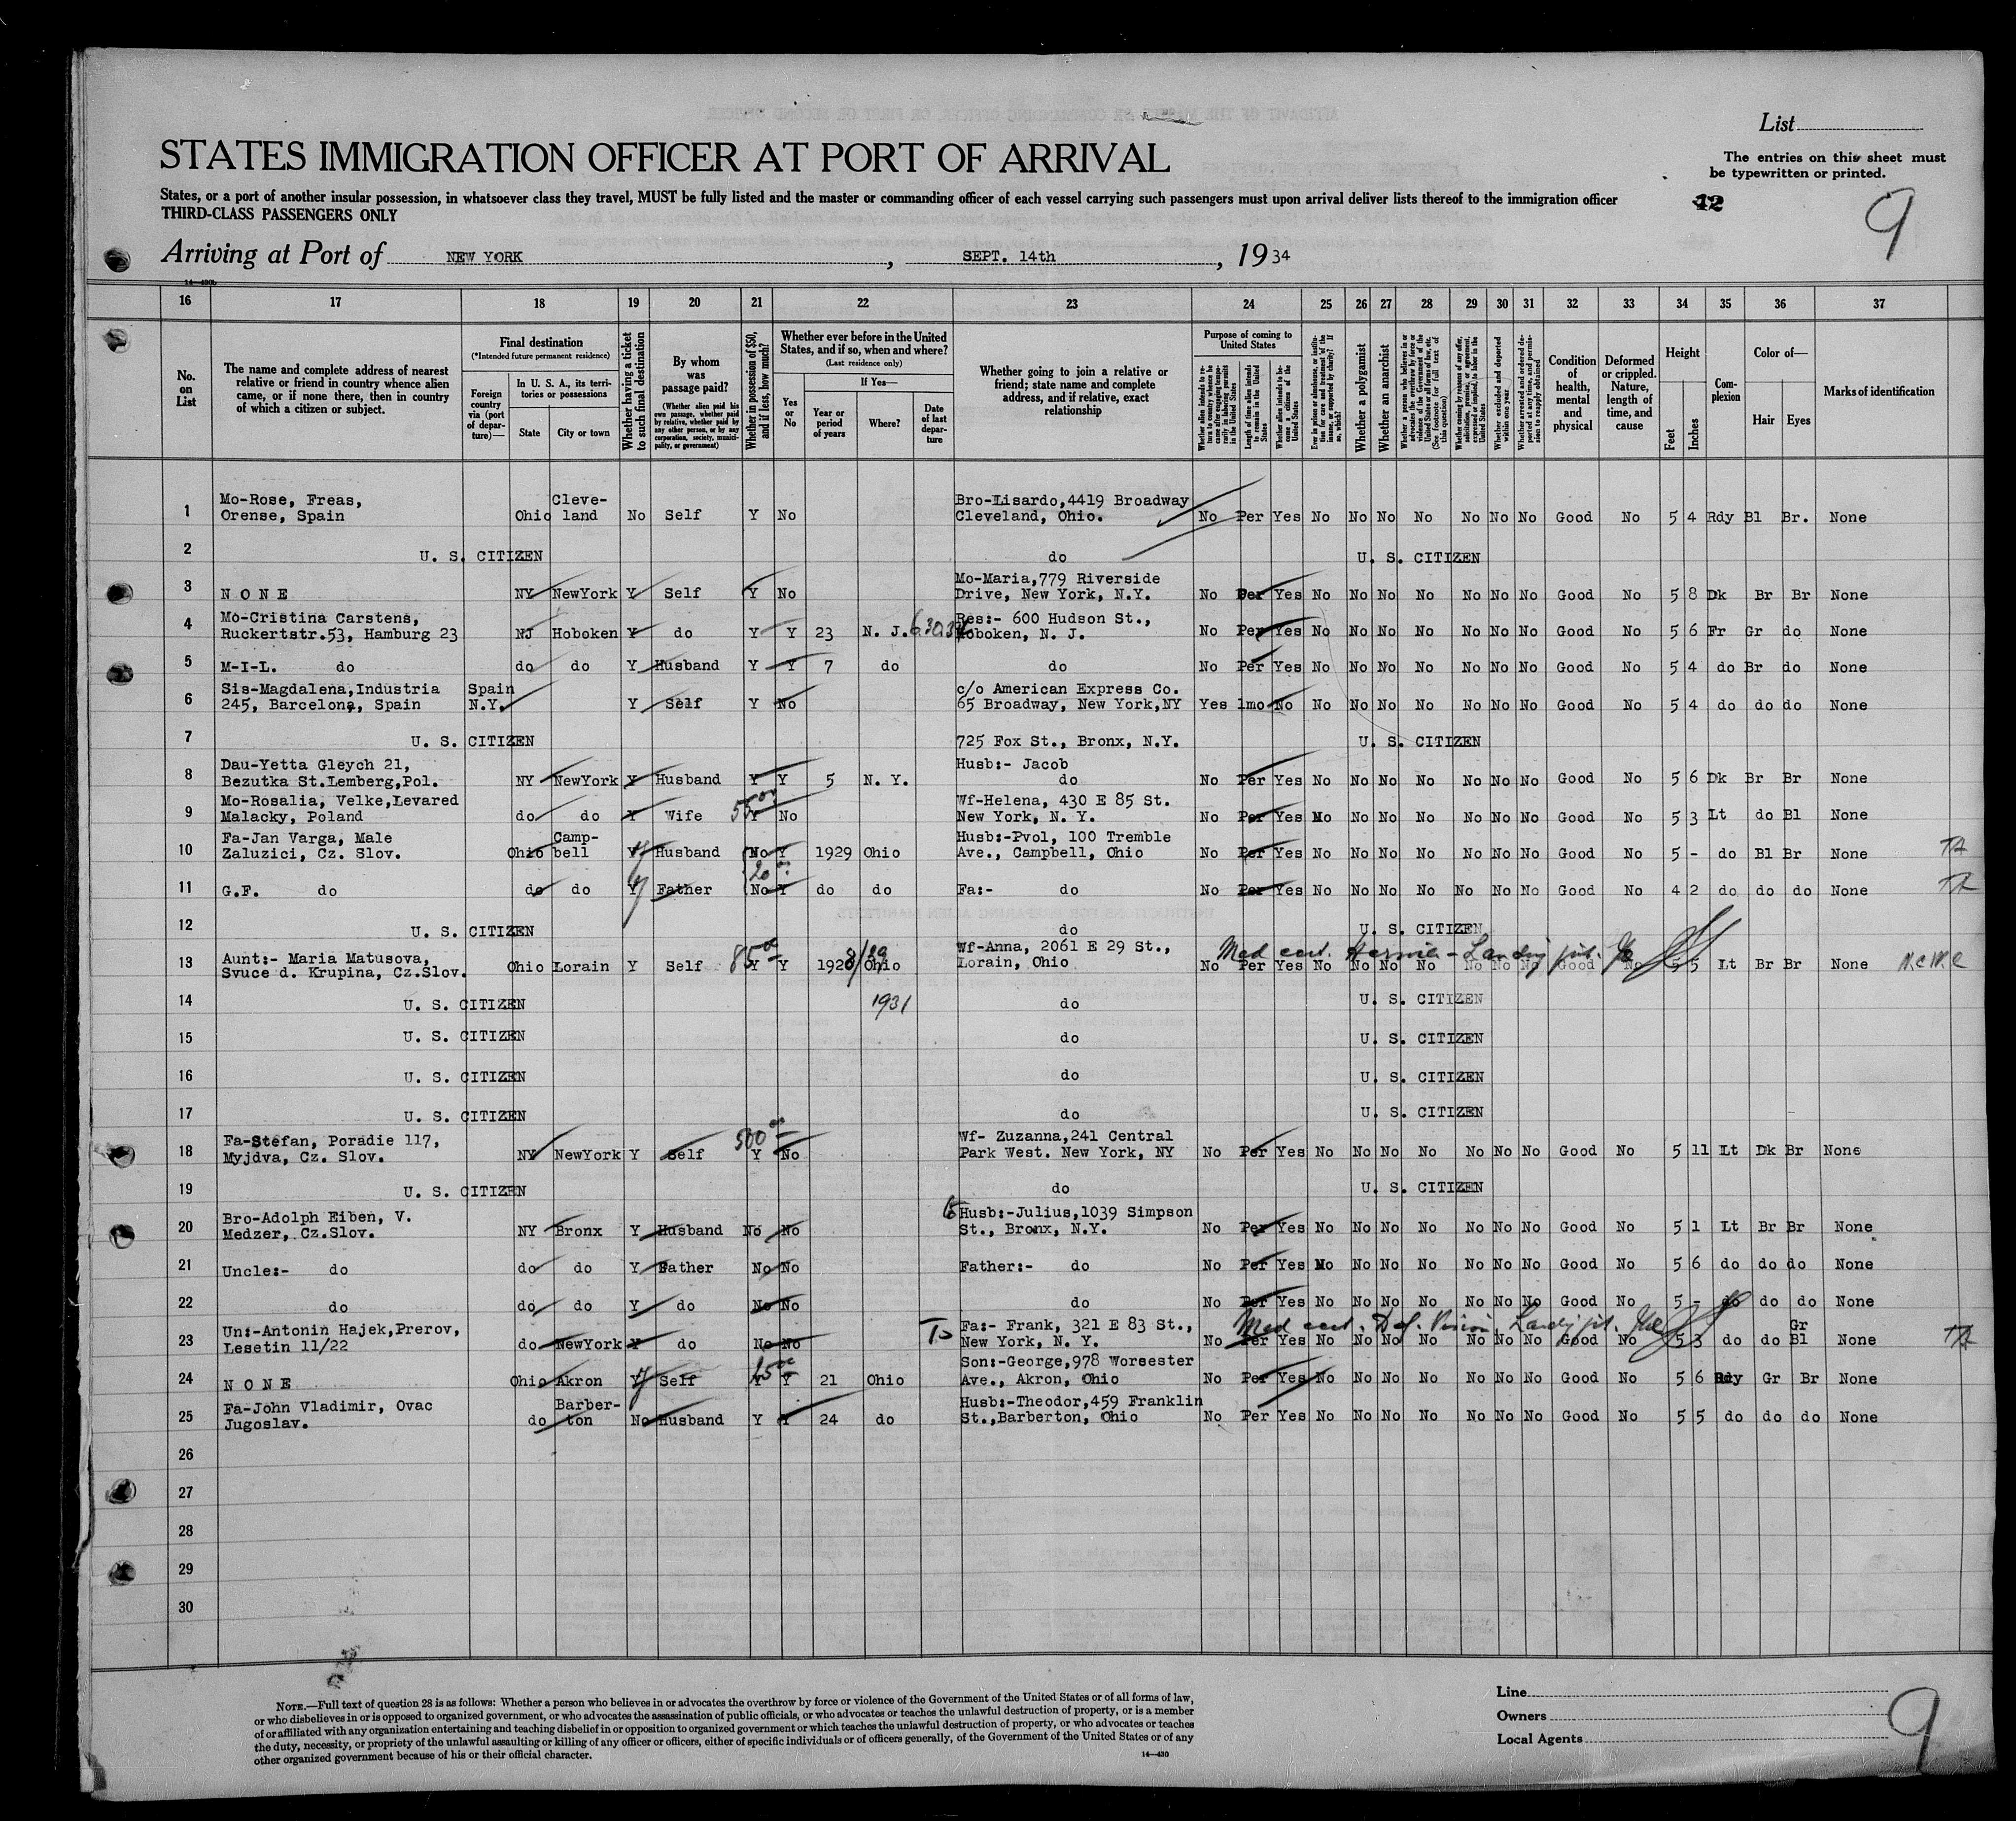 List
STATES IMMIGRATION OFFICER AT PORT OF ARRIVAL
The entries on this sheet must
be typewritten or printed.
States, or a port of another insular possession, in whatsoever class they travel, MUST be fully listed and the master or commanding officer of each vessel carrying such passengers must upon arrival deliver lists thereof to the immigration officer
THIRD-CLASS PASSENGERS ONLY
12
9
Arriving at Port of NEW YORK, SEPT. 14th, 1934
16 17 18 19 20 21 22 23 24 25 26 27 28 29 30 31 32 33 34 35 36 37
No. on List
The name and complete address of nearest relative or friend in country whence alien came, or if none there, then in country of which a citizen or subject.
Final destination
(*Intended future permanent residence)
Foreign country via (port of departure)—
In U. S. A., its territories or possessions
State
City or town
Whether having a ticket to such final destination
By whom was passage paid?
(Whether alien paid his own passage, whether paid by relative, whether paid by any other person, or by any corporation, society, municipality, or government)
Whether in possession of $50, and if less, how much?
Whether ever before in the United States, and if so, when and where?
(Last residence only)
Yes or No
If Yes—
Year or period of years
Where?
Date of last departure
Whether going to join a relative or friend; state name and complete address, and if relative, exact relationship
Purpose of coming to United States
Length of time alien intends to remain in the United States
Whether alien intends to become a citizen of the United States
Whether a polygamist
Whether an anarchist
Whether excluded and deported within one year
Condition of health, mental and physical
Deformed or crippled. Nature, length of time, and cause
Height
Feet
Inches
Complexion
Color of—
Hair
Eyes
Marks of identification
1 Mo-Rose, Freas, Orense, Spain Ohio Cleveland No Self Y No Bro-Lisardo,4419 Broadway Cleveland, Ohio. No Per Yes No No No No No No No Good No 5 4 Rdy Bl Br. None
2 U. S. CITIZEN do U. S. CITIZEN
3 N O N E NY NewYork Y Self Y No Mo-Maria,779 Riverside Drive, New York, N.Y. No Per Yes No No No No No No No Good No 5 8 Dk Br Br None
4 Mo-Cristina Carstens, Ruckertstr.53, Hamburg 23 NJ Hoboken Y do Y Y 23 N. J. Res:- 600 Hudson St., Hoboken, N. J. No Per Yes No No No No No No No Good No 5 6 Fr Gr do None
5 M-I-L. do do do Y Husband Y Y 7 do do No Per Yes No No No No No No No Good No 5 4 do Br do None
6 Sis-Magdalena,Industria 245, Barcelona, Spain Spain N.Y. Y Self Y No c/o American Express Co. 65 Broadway, New York,NY Yes 1mo No No No No No No No No Good No 5 4 do do do None
7 U. S. CITIZEN 725 Fox St., Bronx, N.Y. U. S. CITIZEN
8 Dau-Yetta Gleych 21, Bezutka St.Lemberg,Pol. NY NewYork Y Husband Y Y 5 N. Y. Husb:- Jacob do No Per Yes No No No No No No No Good No 5 6 Dk Br Br None
9 Mo-Rosalia, Velke,Levared Malacky, Poland do do Y Wife Y No Wf-Helena, 430 E 85 St. New York, N. Y. No Per Yes No No No No No No No Good No 5 3 Lt do Bl None
10 Fa-Jan Varga, Male Zaluzici, Cz. Slov. Ohio Campbell Y Husband No Y 1929 Ohio Husb:-Pvol, 100 Tremble Ave., Campbell, Ohio No Per Yes No No No No No No No Good No 5 - do Bl Br None
11 G.F. do do do Y Father No Y do do Fa:- do No Per Yes No No No No No No No Good No 4 2 do do do None
12 U. S. CITIZEN do U. S. CITIZEN
13 Aunt:- Maria Matusova, Svuce d. Krupina, Cz.Slov. Ohio Lorain Y Self 85 Y Y 1928 8/29 Ohio Wf-Anna, 2061 E 29 St., Lorain, Ohio Med cert. Hernia - No Per Yes No No No No No No No Good No 5 5 Lt Br Br None
14 U. S. CITIZEN 1931 do U. S. CITIZEN
15 U. S. CITIZEN do U. S. CITIZEN
16 U. S. CITIZEN do U. S. CITIZEN
17 U. S. CITIZEN do U. S. CITIZEN
18 Fa-Stefan, Poradie 117, Myjdva, Cz. Slov. NY NewYork Y Self 500 Y No Wf- Zuzanna,241 Central Park West. New York, NY No Per Yes No No No No No No No Good No 5 11 Lt Dk Br None
19 U. S. CITIZEN do U. S. CITIZEN
20 Bro-Adolph Eiben, V. Medzer, Cz.Slov. NY Bronx Y Husband No No Husb:-Julius,1039 Simpson St., Bronx, N.Y. No Per Yes No No No No No No No Good No 5 1 Lt Br Br None
21 Uncle:- do do do Y Father No No Father:- do No Per Yes No No No No No No No Good No 5 6 do do do None
22 do do do Y do No No do No Per Yes No No No No No No No Good No 5 - do do do None
23 Un:-Antonin Hajek,Prerov, Lesetin 11/22 do NewYork Y do No No To Fa:- Frank, 321 E 83 St., New York, N. Y. Med cert. Def. Vision No Per Yes No No No No No No No Good No 5 3 do do Gr Bl None
24 N O N E Ohio Akron Y Self Y Y 21 Ohio Son:-George,978 Worsester Ave., Akron, Ohio No Per Yes No No No No No No No Good No 5 6 Rdy Gr Br None
25 Fa-John Vladimir, Ovac Jugoslav. do Barberton No Husband Y Y 24 do Husb:-Theodor,459 Franklin St.,Barberton, Ohio No Per Yes No No No No No No No Good No 5 5 do do do None
26
27
28
29
30
NOTE.—Full text of question 28 is as follows: Whether a person who believes in or advocates the overthrow by force or violence of the Government of the United States or of all forms of law,
or who disbelieves in or is opposed to organized government, or who advocates the assassination of public officials, or who advocates or teaches the unlawful destruction of property, or is a member
of or affiliated with any organization entertaining and teaching disbelief in or opposition to organized government or which teaches the unlawful destruction of property, or who advocates or teaches
the duty, necessity, or propriety of the unlawful assaulting or killing of any officer or officers, either of specific individuals or of officers generally, of the Government of the United States or of any
other organized government because of his or their official character.
14—430
Line
Owners
Local Agents
9